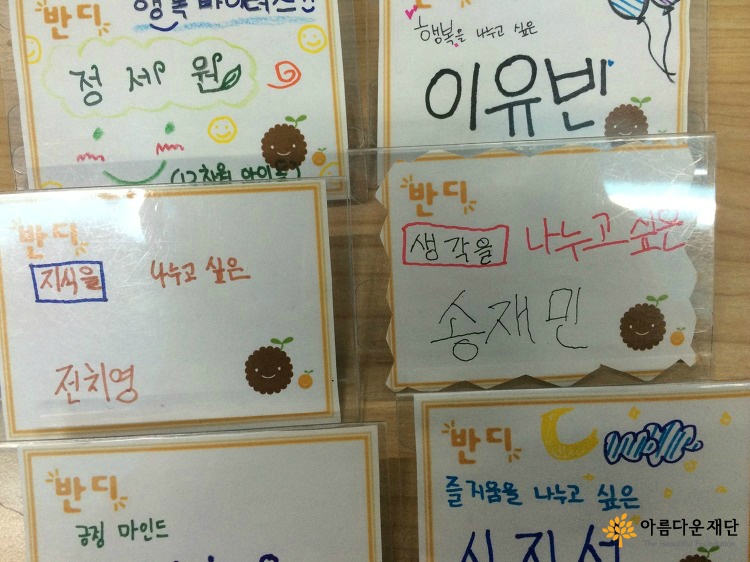 반디
행복 바이러스!!
정제원
(12차원 아이들)
반디
행복을 나누고 싶은
이유빈
반디
지식을 나누고 싶은
전치영
반디
생각을 나누고 싶은
송재민
반디
긍정 마인드
반디
즐거움을 나누고 싶은
아름다운재단